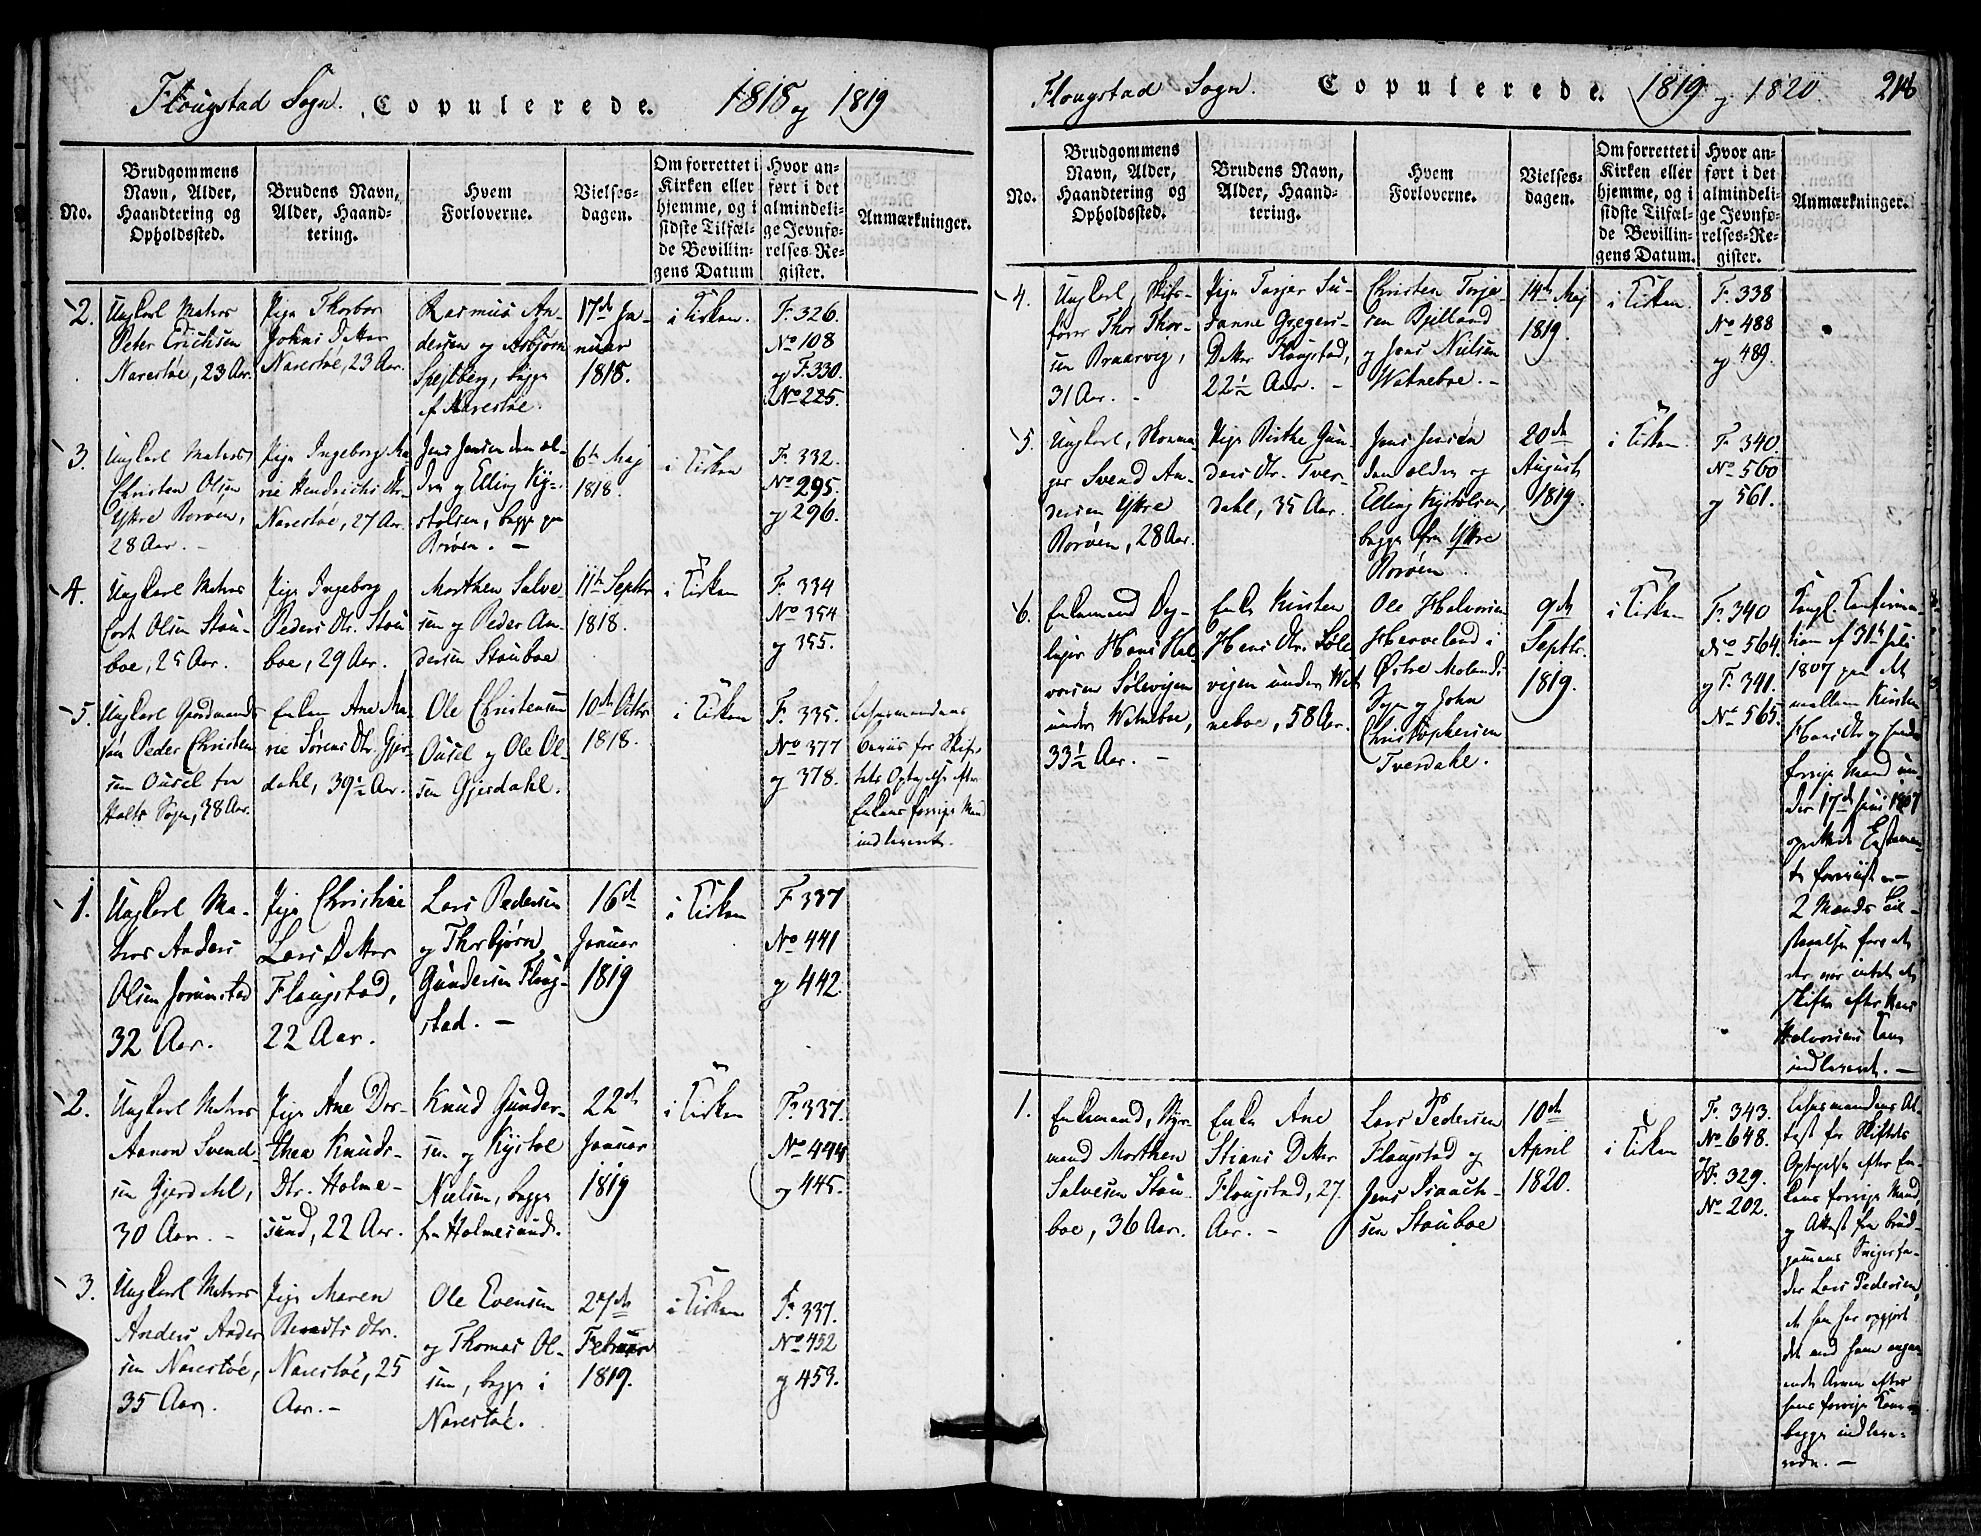 Flougstad Sogn. Copulerede. 1818 og 1819
No.
Brudgommens
Navn, Alder,
Haandtering og
Opholdssted.
Brudens Navn,
Alder, Haand-
tering.
Hvem
Forloverne.
Vielses-
dagen.
Om forrettet i
Kirken eller
hjemme, og i
sidste Tilfæl-
de Bevillin-
gens Datum
Hvor an-
ført i det
almindeli-
ge Jevnfø-
relses-Re-
gister.
Anmærkninger.
2.
Ungkarl Matros
Peter Erichsen
Narestøe, 23 Aar.
Pige Thorbor
Johns Datter
Narestøe, 23 Aar.
Rasmus An-
dersen og Asbjørn
Spejlberg, begge
af Narestøe.
17de Ja-
nuar
1818.
i Kirken.
F. 326.
No 108
og F. 330.
No 225.
3.
Ungkarl Matros
Christen Olsen
Ystre Borøen,
28 Aar. –
Pige Ingeborg Ma
rie Hendrichs Dtr.
Narestøe, 27 Aar.
Jens Jensen den æl-
dre og Elling Ky-
stolsen, begge paa
Borøen. –
6te Maj
1818.
i Kirken
F. 332.
No 295.
og 296.
4.
Ungkarl Matros
Cort Olsen Stau-
boe, 25 Aar.
Pige Ingeborg
Peders Dtr. Stau
boe, 29 Aar.
Morthen Salve
sen og Peder An-
dersen Stauboe
11te Septbr
1818.
i Kirken
F. 334
No 354
og 355.
5.
Ungkarl Gaardmands
søn Peder Christen
sen Ousel fra
Holts Sogn, 38 Aar.
Enken Ane Ma-
rie Sørens Dtr. Gjer
dahl, 39½ Aar.
Ole Christensen
Ousel og Ole Ol-
sen Gjerdahl.
10de Octbr
1818.
i Kirken
F. 335.
No 377
og 378.
Lehnsmandens
Beviis for Skif-
tets Optagelse efter
Enkens forrige Mand
indleveret.
1.
Ungkarl Ma-
tros Anders
Olsen Jorunstad
32 Aar.
Pige Christine
Lars Datter
Flougstad,
22 Aar.
Lars Pedersen
og Thorbjørn
Gundersen Floug-
stad. –
16de
Januar
1819
i Kirken
F. 337
No 441
og 442.
2.
Ungkarl Matros
Aanon Svend-
sen Gjerdahl,
30 Aar. –
Pige Ane Dor-
thea Knuds-
Dtr. Holme-
sund, 22 Aar.
Knud Gunder-
sen og Kystol
Nielsen, begge
fra Holmesund.
22de
Januar
1819
i Kirken
F. 337.
No 444
og 445.
3.
Ungkarl Matros
Anders Ander
sen Narestøe,
35 Aar.
Pige Maren
Bernts Dtr.
Narestøe, 25
Aar. –
Ole Evensen
og Thomas Ol-
sen, begge i
Narestøe.
27de
Februar
1819.
i Kirken
F. 337.
No 452
og 453.
Flougstad Sogn. Copulerede. 1819 og 1820.
No.
Brudgommens
Navn, Alder,
Haandtering og
Opholdssted.
Brudens Navn,
Alder, Haand-
tering.
Hvem
Forloverne.
Vielses-
dagen.
Om forrettet i
Kirken eller
hjemme, og i
sidste Tilfæl-
de Bevillin-
gens Datum.
Hvor an-
ført i det
almindeli-
ge Jevnfø-
relses-Re-
gister.
Anmærkninger.
4.
Ungkarl, Skibs-
fører Thor Thor-
sen Braarvig,
31 Aar. –
Pige Tarjer Su-
sanne Gregers-
Datter Flougstad,
22½ Aar. –
Christen Terje-
sen Bjelland
og Jens Nielsen
Watneboe. –
14de Maj
1819.
i Kirken.
F. 338
No 488
og 489.
5.
Ungkarl, Skoema-
ger Svend An-
dersen Ystre
Borøen, 28 Aar.
Pige Birthe Gun-
ders Dtr. Tver-
dahl, 35 Aar.
Jens Jensen
den ældre og
Elling Kystolsen,
begge fra Ystre
Borøen.
20de
August
1819.
i Kirken.
F. 340.
No 560
og 561.
6.
Enkemand
Hans Hal-
vorsen Sølevigen
under Watneboe,
33½ Aar. –
Enke Kirsten
Hans Dtr. Søle
vigen under Wat
neboe, 58 Aar.
Ole Halvorsen
Hæreveland i
Østre Molands
Sogn og John
Christophersen
Tverdahl.
9de
Septbr.
1819.
i Kirken
F. 340
No 564.
og F. 341.
No 565.
Kongl. Confirma-
tion af 31te Juli
1807 paa det
mellem Kirsten
Hans Dtr og hendes
forrige Mand un-
der 17de Juni 1807
oprettede Testamen-
te foreviist. –
2 Mænds Til-
staaelse for at
der var intet at
skifte efter Hans
Halvorsens Kone
indleveret. –
1.
Enkemand, Styr-
mand Morthen
Salvesen Stau-
boe, 36 Aar.
Enke Ane
Stians Datter
Flougstad, 27
Aar. –
Lars Pedersen
Flougstad og
Jens Isaach-
sen Stauboe
10de
April
1820.
i Kirken
F. 343.
No 648.
og F. 329.
No 202.
Lehnsmandens At-
test for Skiftets
Optagelse efter En-
kens forrige Mand,
og Attest fra Brud-
gomens Svigerfa-
der Lars Pedersen,
at han har opgjort
det med ham angaa-
ende Arven efter
hans forrige Kone
begge indleve-
rede. –